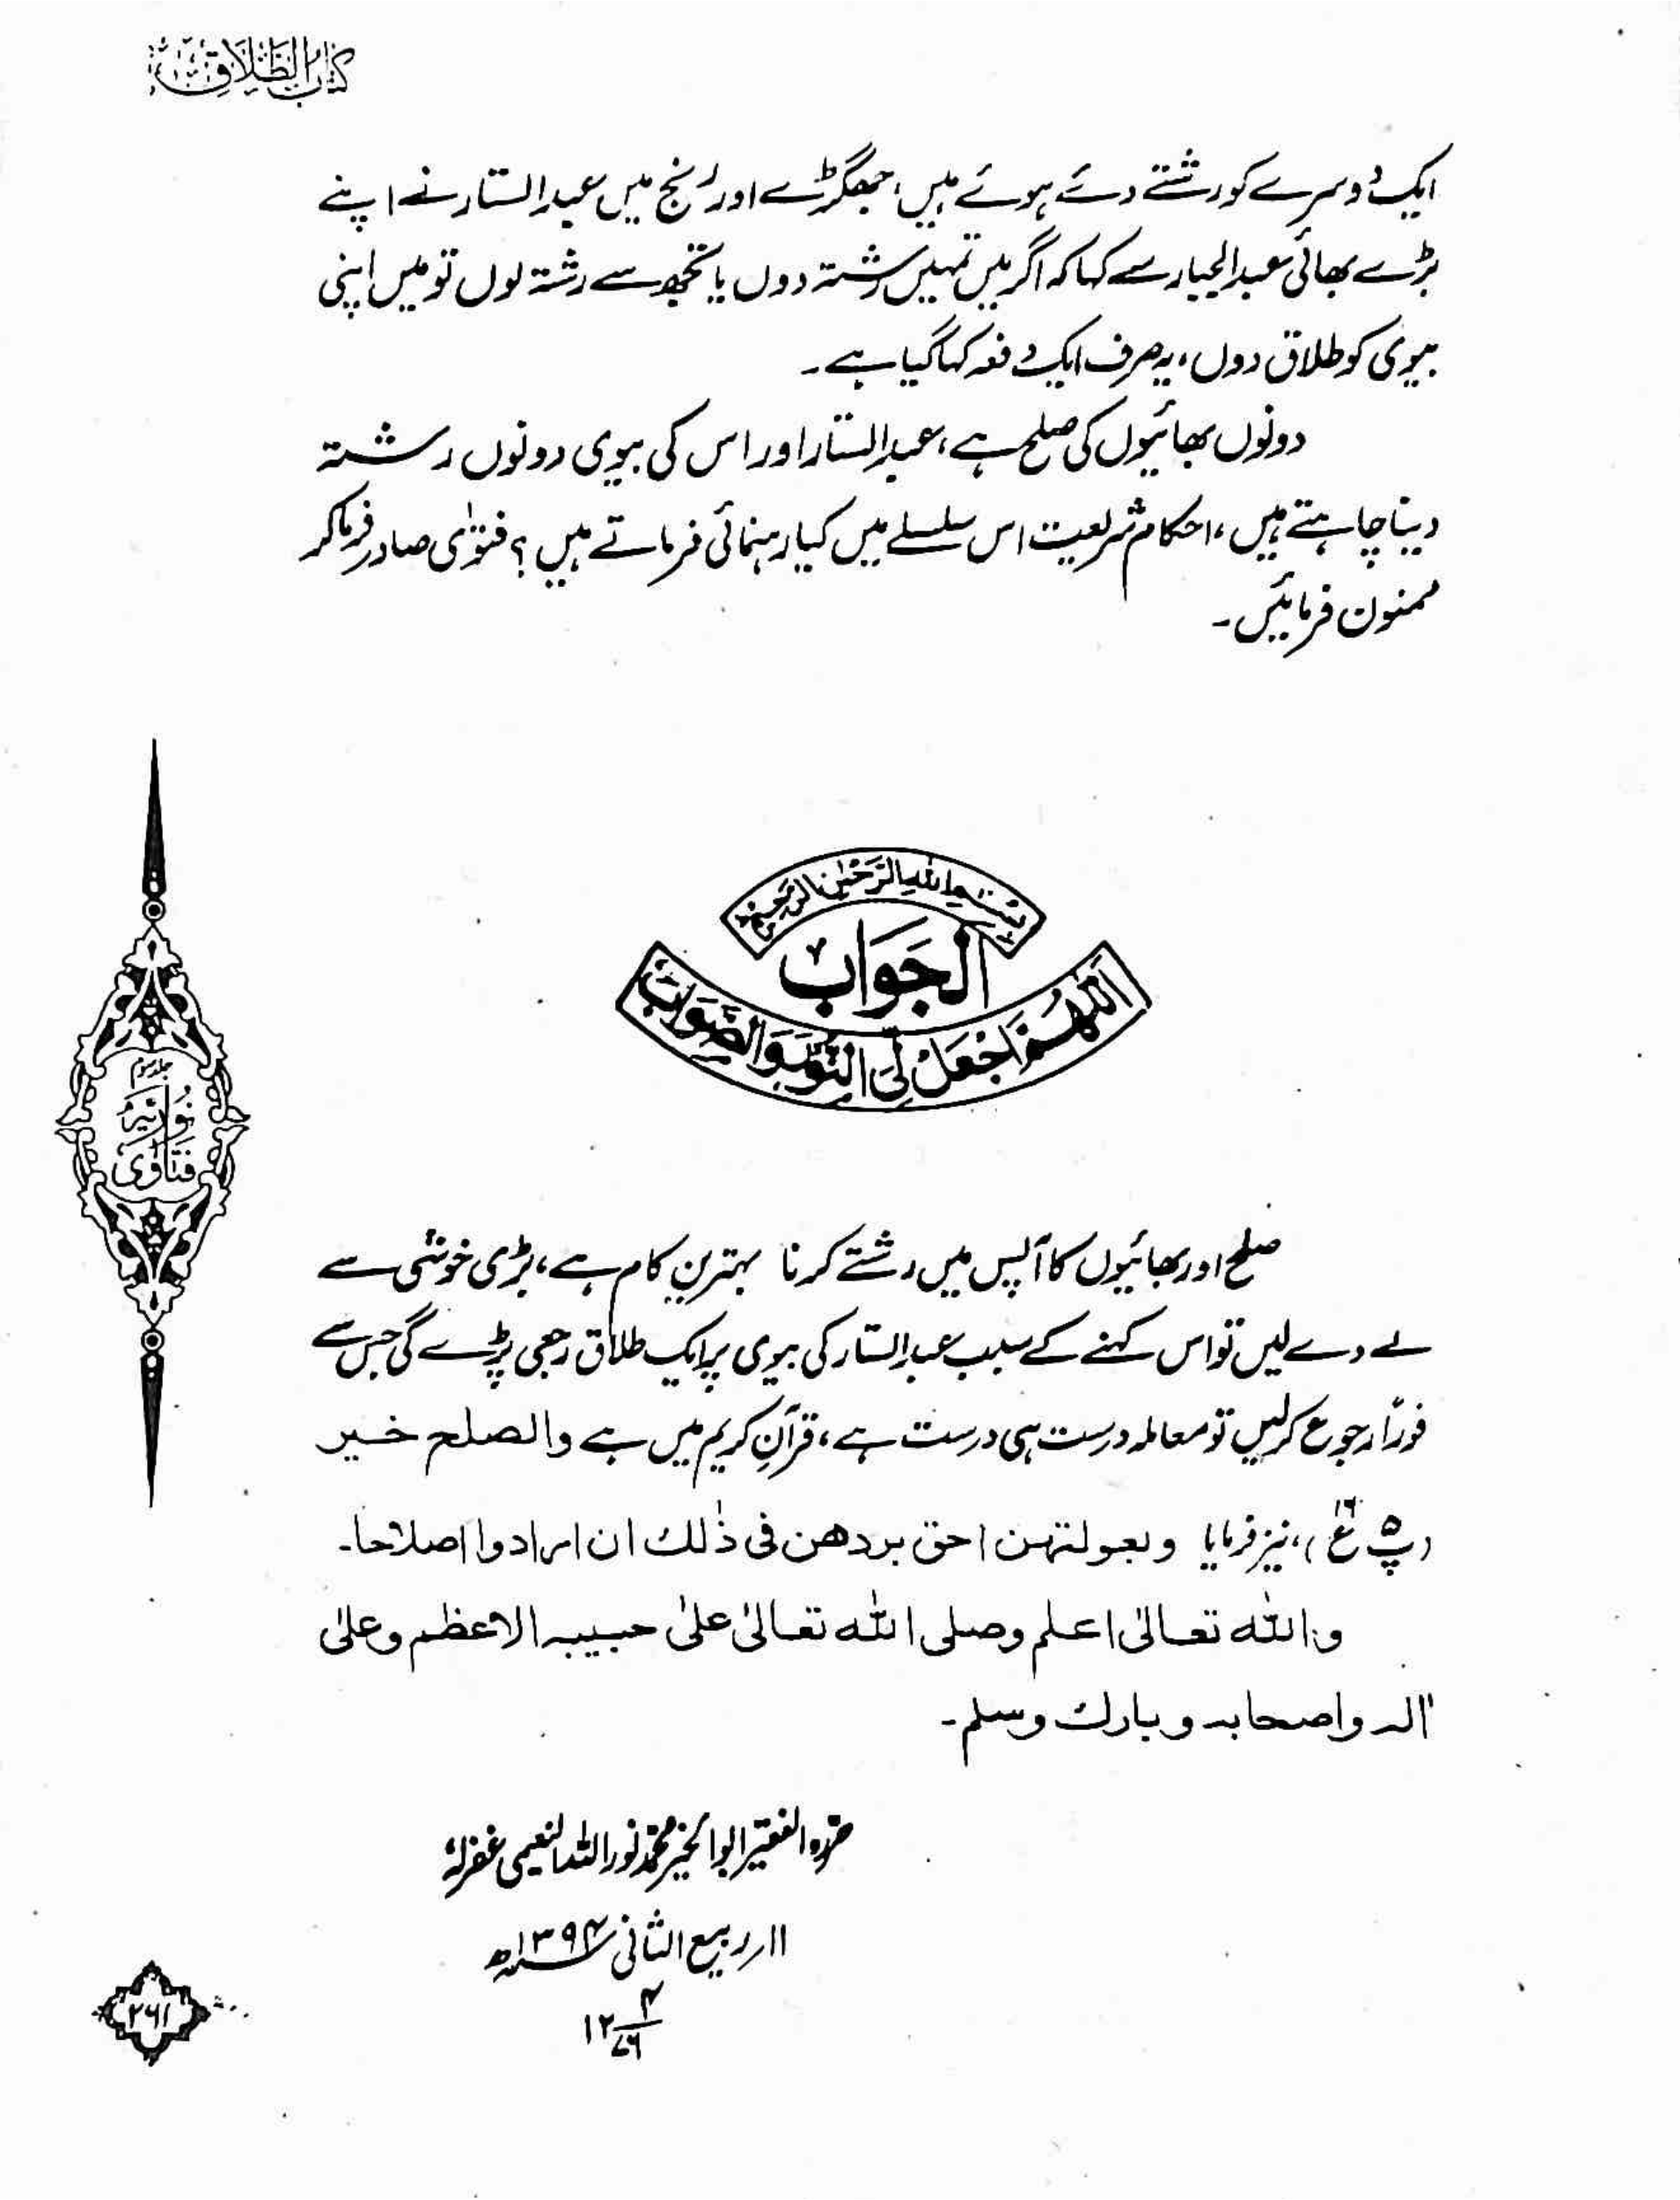 کتاب الطلاق
ایک دوسرے کو رشتے دئے ہوئے ہیں، جھگڑے اور رنج میں عبدالستار نے اپنے
بڑے بھائی عبدالجبار سے کہا کہ اگر میں تمہیں رشتہ دوں یا تجھ سے رشتہ لوں تو میں اپنی
بیوی کو طلاق دوں، یہ صرف ایک دفعہ کہا گیا ہے۔
دونوں بھائیوں کی صلح ہے، عبدالستار اور اس کی بیوی دونوں رشتہ
دینا چاہتے ہیں، احکام شریعت اس سلسلے میں کیا رہنمائی فرماتے ہیں؟ فتوٰی صادر فرما کر
ممنون فرمائیں۔
بِسْمِ اللهِ الرَّحْمٰنِ الرَّحِيْمِ
الجَوَاب
اَللّٰهُمَّ اجْعَلْ لِیَ النُّوْرَ وَالصَّوَابَ
جلد سوم
نُوریّہ
فتاوٰی
صلح اور بھائیوں کا آپس میں رشتے کرنا بہترین کام ہے، بڑی خوشی سے
لے دے لیں تو اس کہنے کے سبب عبدالستار کی بیوی پر ایک طلاق رجعی پڑے گی جس سے
فورًا رجوع کرلیں تو معاملہ درست ہی درست ہے، قرآنِ کریم میں ہے والصلح خیر
(پ ۵ ع ۱۶)، نیز فرمایا وبعولتهن احق بردهن فی ذٰلك ان ارادوا اصلاحا۔
والله تعالىٰ اعلم وصلى الله تعالىٰ علىٰ حبیبہ الاعظم وعلىٰ
آلہ واصحابہ وبارك وسلم۔
حررہ الفقیر ابوالخیر محمد نوراللہ النعیمی غفرلہٗ
۱۱؍ ربیع الثانی ۱۳۹۴ھ
۱۲ ۴/۷۶
۲۶۱